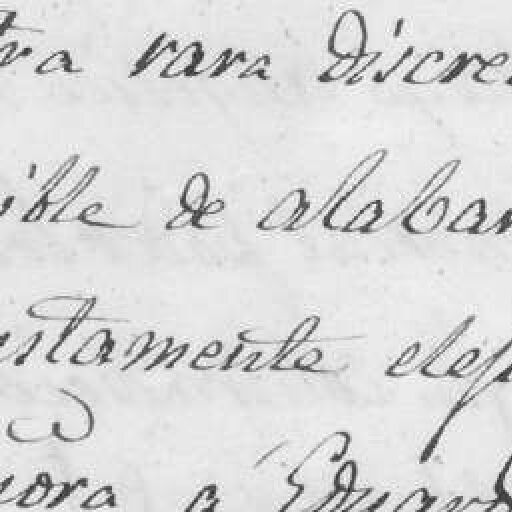 tra rara discre
ible de alaban
ustamente elep
ñora a Eduard